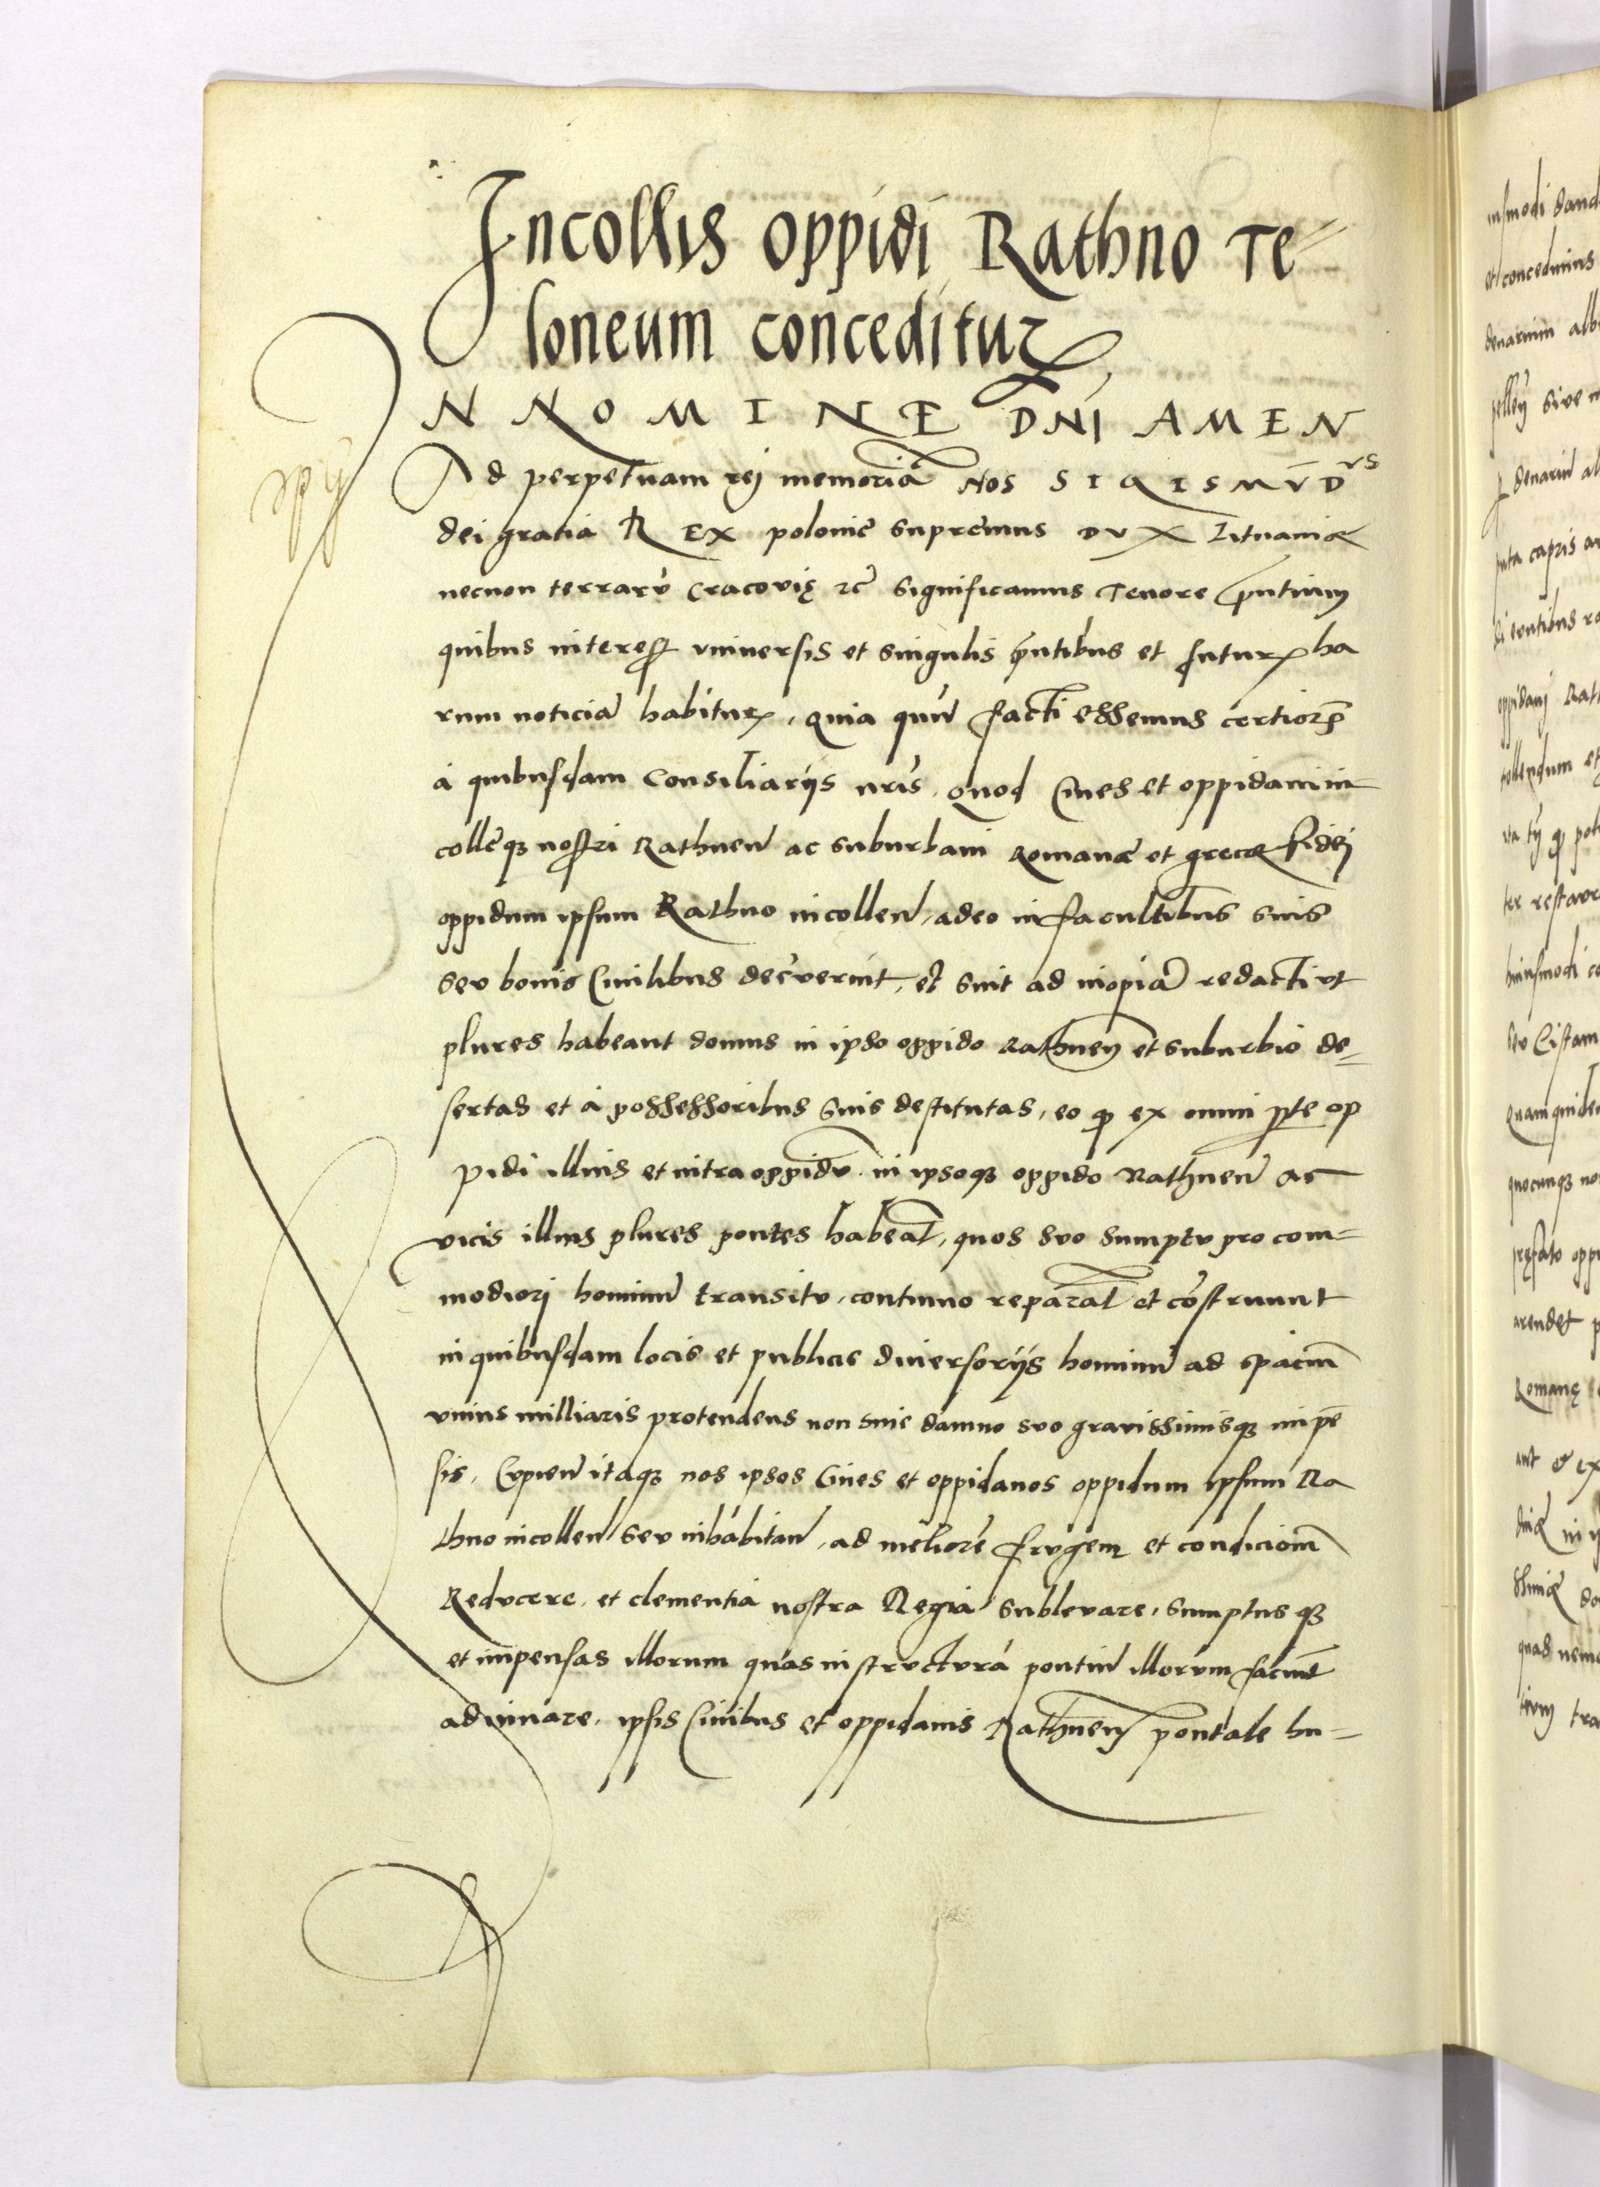 Incollis oppidi Rathno Te=
loneum conceditur
IN NOMINE DNĪ AMEN
Ad perpetuam rei memoriā Nos SIGISMV̄Dvs
dei gratia REX polonie supremus DVX Lituaniæ
necnon terrarū Cracovię &c̃ significamus Tenore p̄ntium
quibus interest vniuersis et singulis p̄ntibus et futur ha
rum noticiā habitur, quia quū facti essemus certior̄
à quibusdam Consiliarijs nr̄is, quod Ciues et oppidani in
collęq3 nostri Rathnen̄ ac suburbani Romanæ et grecæ fidej
oppidum ipsum Rathno incollen̄, adeo in facultibus suis
seu bonis Ciuilibus decreuerint, et sint ad inopiā redacti vt
plures habeant domus in ipso oppido Rathnen̄ et suburbio de=
sertas et à possessoribus suis destitutas, eo ꝙ ex omni pte op
pidi illius et intra oppidū in ipsoq3 oppido Rathnen̄ ac
vicis illius plures pontes habeāt, quos suo sumptu pro com=
modiorj hominū transitu, continuo reparāt et cōstruunt
in quibusdam locis et publicis diuersorijs hominū ad spaciū
vnius milliaris protendens non sine damno suo grauissimisq3 impē
sis, Cupien̄ itaq3 nos ipsos Ciues et oppidanos oppidum ipsum Ra
thno incollen̄ seu inhabitan̄, ad meliorē frugem et condicionē
Reducere, et clementia nostra Regia subleuare, sumptus q3
et impensas illorum quas in structura pontiū illorum faciūt
adiuuare, ipsis Ciuibus et oppidanis Rathnen̄ pontale hu=